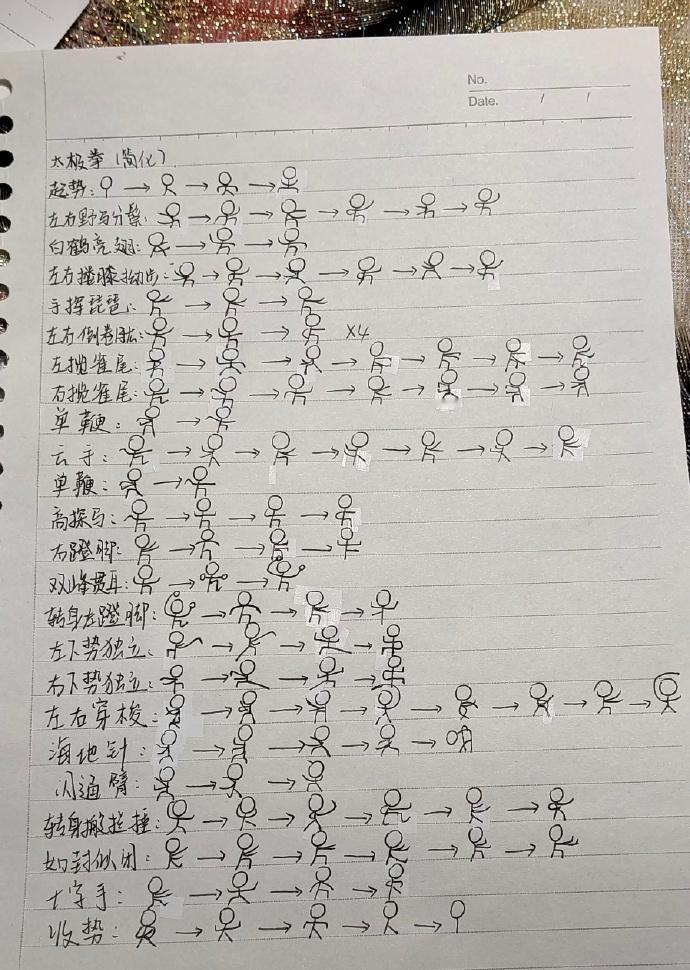 No.
Date. / /
太极拳(简化)
起势:
左右野马分鬃:
白鹤亮翅:
左右搂膝拗步:
手挥琵琶:
左右倒卷肱: X4
左揽雀尾:
右揽雀尾:
单鞭:
云手:
单鞭:
高探马:
右蹬脚:
双峰贯耳:
转身左蹬脚:
左下势独立:
右下势独立:
左右穿梭:
海地针:
闪通臂:
转身搬拦捶:
如封似闭:
十字手:
收势: